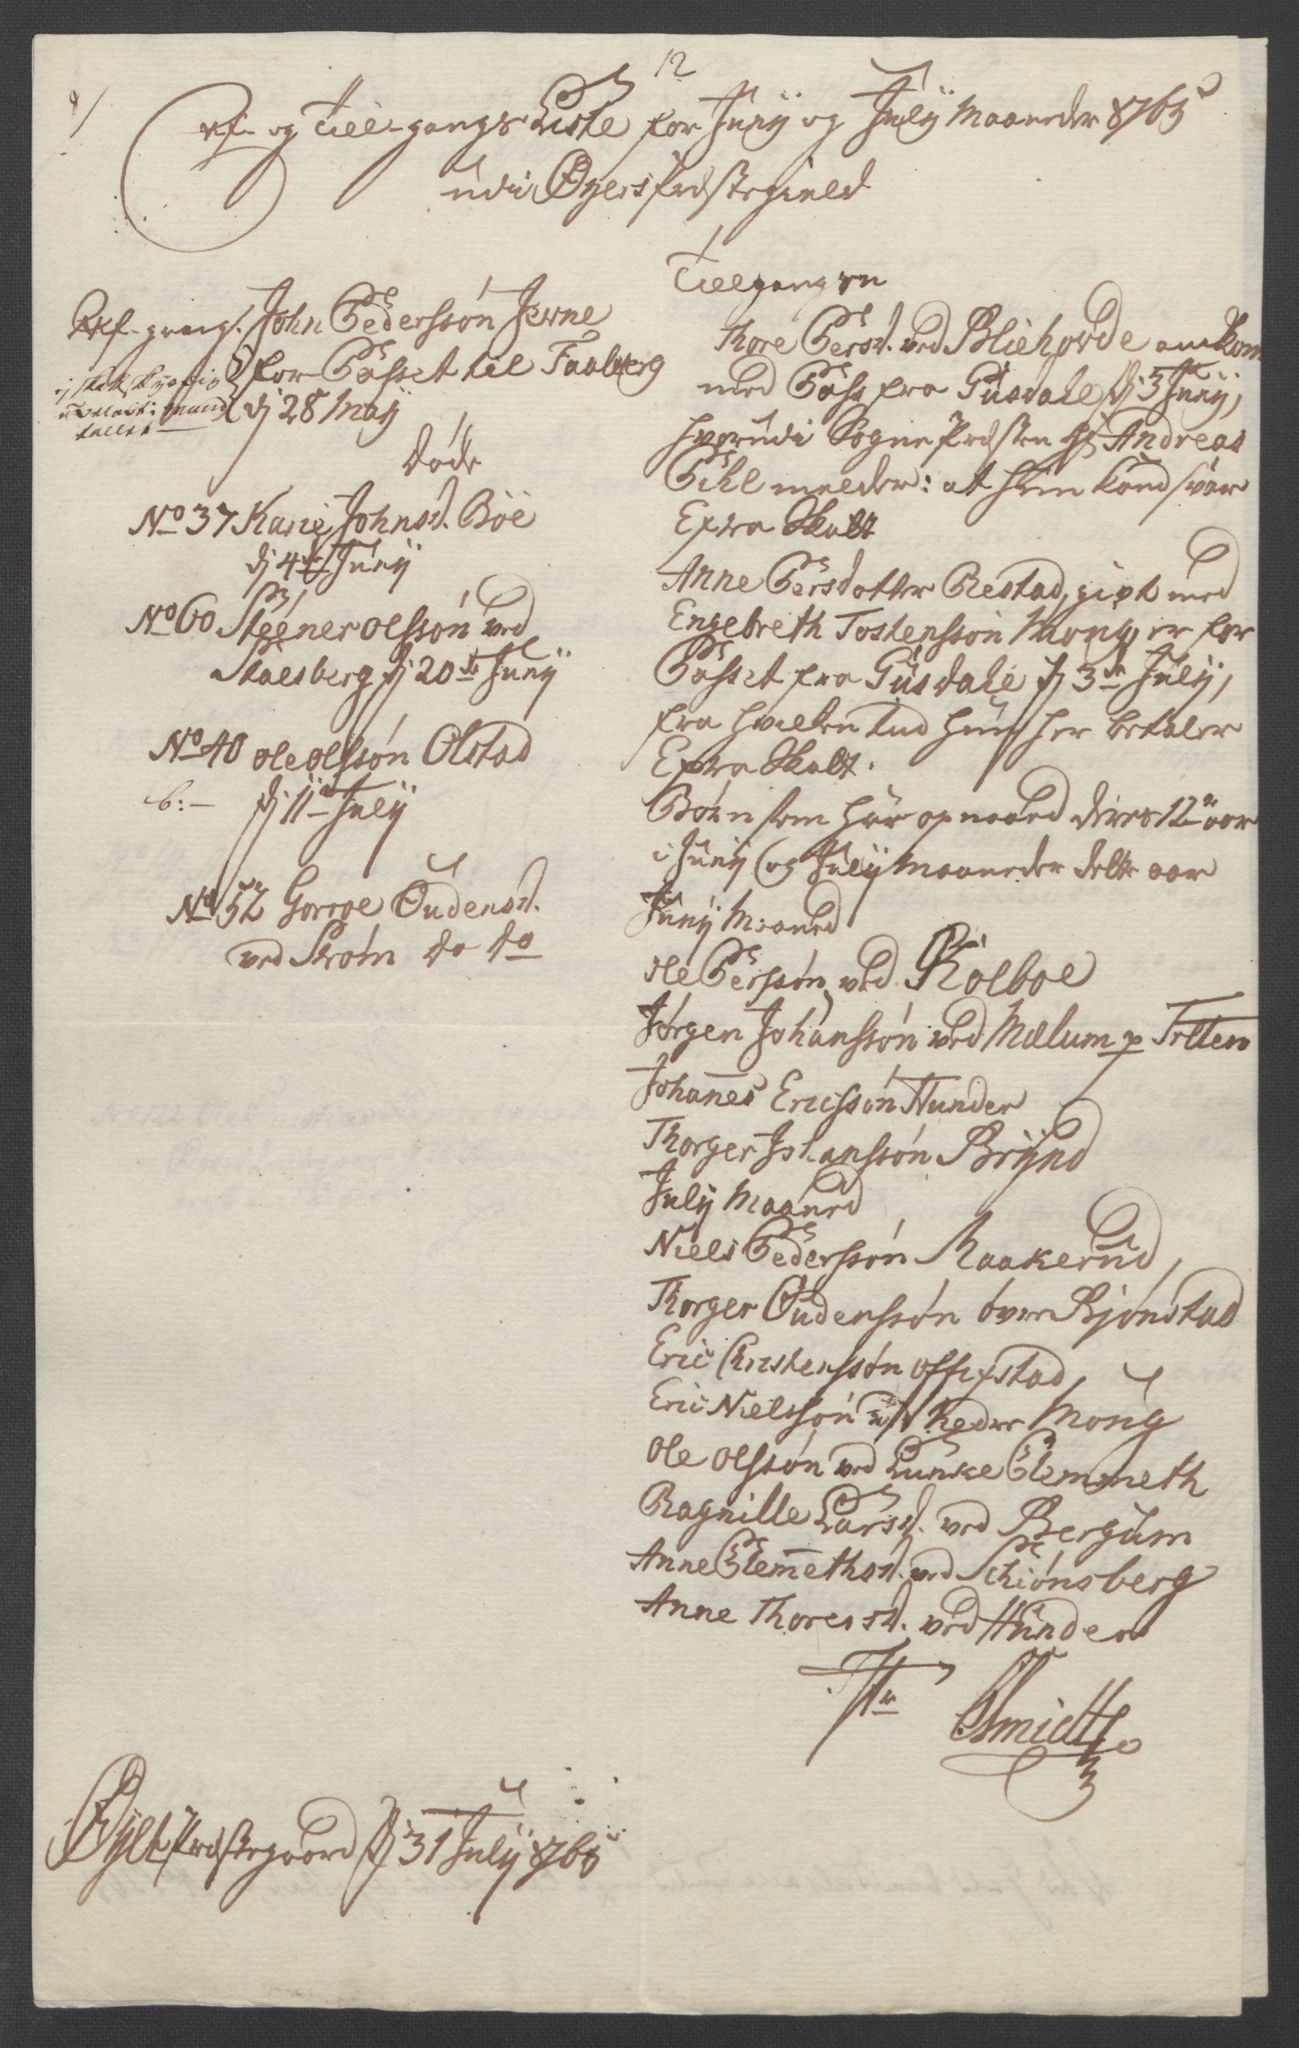 12
Af- og Till-gangs Liste for Junÿ og Julÿ Maaneder 1765
udi Øyers Præstegield
Af-gang. John Pederssøn Jevne
forPasset til Faaberg
dj 28 Maÿ
Døde
No 37 Karie Johnsd. Bøe
dj 4de Junÿ
No 60 Steener Olssøn ved
Stalsberg dj 20de Junÿ
No 40 Ole Olssøn Olstad
b:- dj 11te Julÿ
No 52 Gorroe Oudensd.
ved Strøm do do
Tillgangen
Thore Persd. ved Bliehovde ankom
med Pass fra Gusdahl dj 5 Junÿ,
hvorudi Sogne Præsten Hr Andreas
Pihl melder: at hun kand svare
Extra Skatt
Anne Persdotter Restad, gift med
Engebreth Tostenssøn Mong, er for
Passet fra Gusdahl dj 3de Julÿ,
fra hvilken tiid hun her betaler
Extra Skatt.
Børn som har opnaaed deres 12te aar
i Junÿ og Julÿ Maaneder dette aar
Junÿ Maaned
Ole Perssøn ved Rolboe
Jørgen Johanssøn ved Mælum p Tretten
Johanes Ericssøn Hunder
Thorger Johanssøn Brÿnd
Julÿ Maaned
Niels Pederssøn Raakerud,
Thorger Oudenssøn øvre Bjønstad
Eric Christenssøn Offigstad
Eric Nielssøn Neder Mong
Ole Olssøn ved Lunke Clemmeth
Ragnille Larsd. ved Bergum
Anne Clemethsd. ved Schiønsberg
Anne Thoresd. ved Hunder
Schmidt
Øyer Præstegaard dj 31 Julÿ 1765